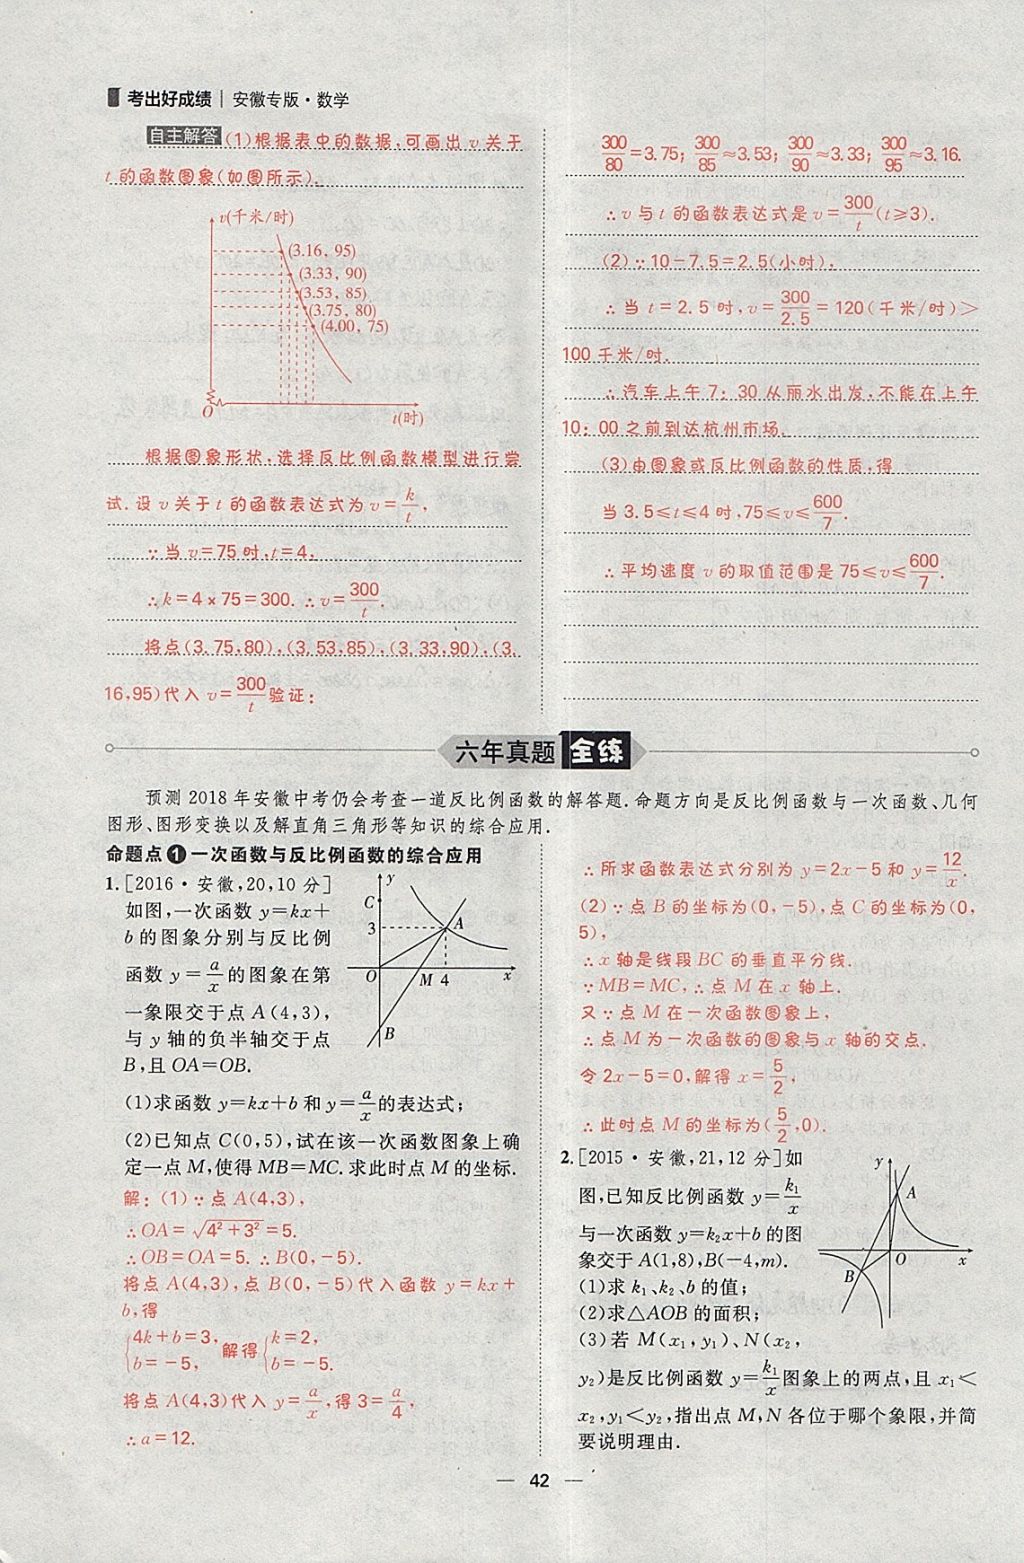 考出好成绩 | 安徽专版·数学
自主解答 (1)根据表中的数据,可画出 v 关于
t 的函数图象(如图所示).
v(千米/时)
(3.16, 95)
(3.33, 90)
(3.53, 85)
(3.75, 80)
(4.00, 75)
O
t(时)
根据图象形状,选择反比例函数模型进行尝
试.设 v 关于 t 的函数表达式为 v=k/t,
∵当 v=75 时,t=4.
∴k=4×75=300.∴v=300/t.
将点(3.75,80),(3.53,85),(3.33,90),(3.
16,95)代入 v=300/t验证:
300/80=3.75; 300/85≈3.53; 300/90≈3.33; 300/95≈3.16.
∴v 与 t 的函数表达式是 v=300/t(t≥3).
(2)∵10-7.5=2.5(小时).
∴当 t=2.5 时,v=300/2.5=120(千米/时)>
100 千米/时.
∴汽车上午 7:30 从丽水出发,不能在上午
10:00 之前到达杭州市场.
(3)由图象或反比例函数的性质,得
当 3.5≤t≤4 时,75≤v≤600/7.
∴平均速度 v 的取值范围是 75≤v≤600/7.
六年真题 全练
预测 2018 年安徽中考仍会考查一道反比例函数的解答题.命题方向是反比例函数与一次函数、几何
图形、图形变换以及解直角三角形等知识的综合应用.
命题点❶一次函数与反比例函数的综合应用
1.[2016·安徽,20,10 分]
如图,一次函数 y=kx+
b 的图象分别与反比例
函数 y=a/x的图象在第
一象限交于点 A(4,3),
与 y 轴的负半轴交于点
B,且 OA=OB.
y
C
3
A
O
M 4
x
B
(1)求函数 y=kx+b 和 y=a/x的表达式;
(2)已知点 C(0,5),试在该一次函数图象上确
定一点 M,使得 MB=MC.求此时点 M 的坐标.
解:(1)∵点 A(4,3),
∴OA=√(4²+3²)=5.
∴OB=OA=5.∴B(0,-5).
将点 A(4,3),点 B(0,-5)代入函数 y=kx+
b,得
{4k+b=3, 解得{k=2,
b=-5, b=-5.
将点 A(4,3)代入 y=a/x,得 3=a/4,
∴a=12.
∴所求函数表达式分别为 y=2x-5 和 y=12/x.
(2)∵点 B 的坐标为(0,-5),点 C 的坐标为(0,
5),
∴x 轴是线段 BC 的垂直平分线.
∵MB=MC,∴点 M 在 x 轴上.
又∵点 M 在一次函数图象上,
∴点 M 为一次函数的图象与 x 轴的交点.
令 2x-5=0,解得 x=5/2,
∴此时点 M 的坐标为(5/2,0).
2.[2015·安徽,21,12 分]如
图,已知反比例函数 y=k₁/x
与一次函数 y=k₂x+b 的图
象交于 A(1,8),B(-4,m).
(1)求 k₁、k₂、b 的值;
(2)求△AOB 的面积;
y
A
O
x
B
(3)若 M(x₁,y₁)、N(x₂,
y₂)是反比例函数 y=k₁/x图象上的两点,且 x₁<
x₂,y₁<y₂,指出点 M,N 各位于哪个象限,并简
要说明理由.
— 42 —